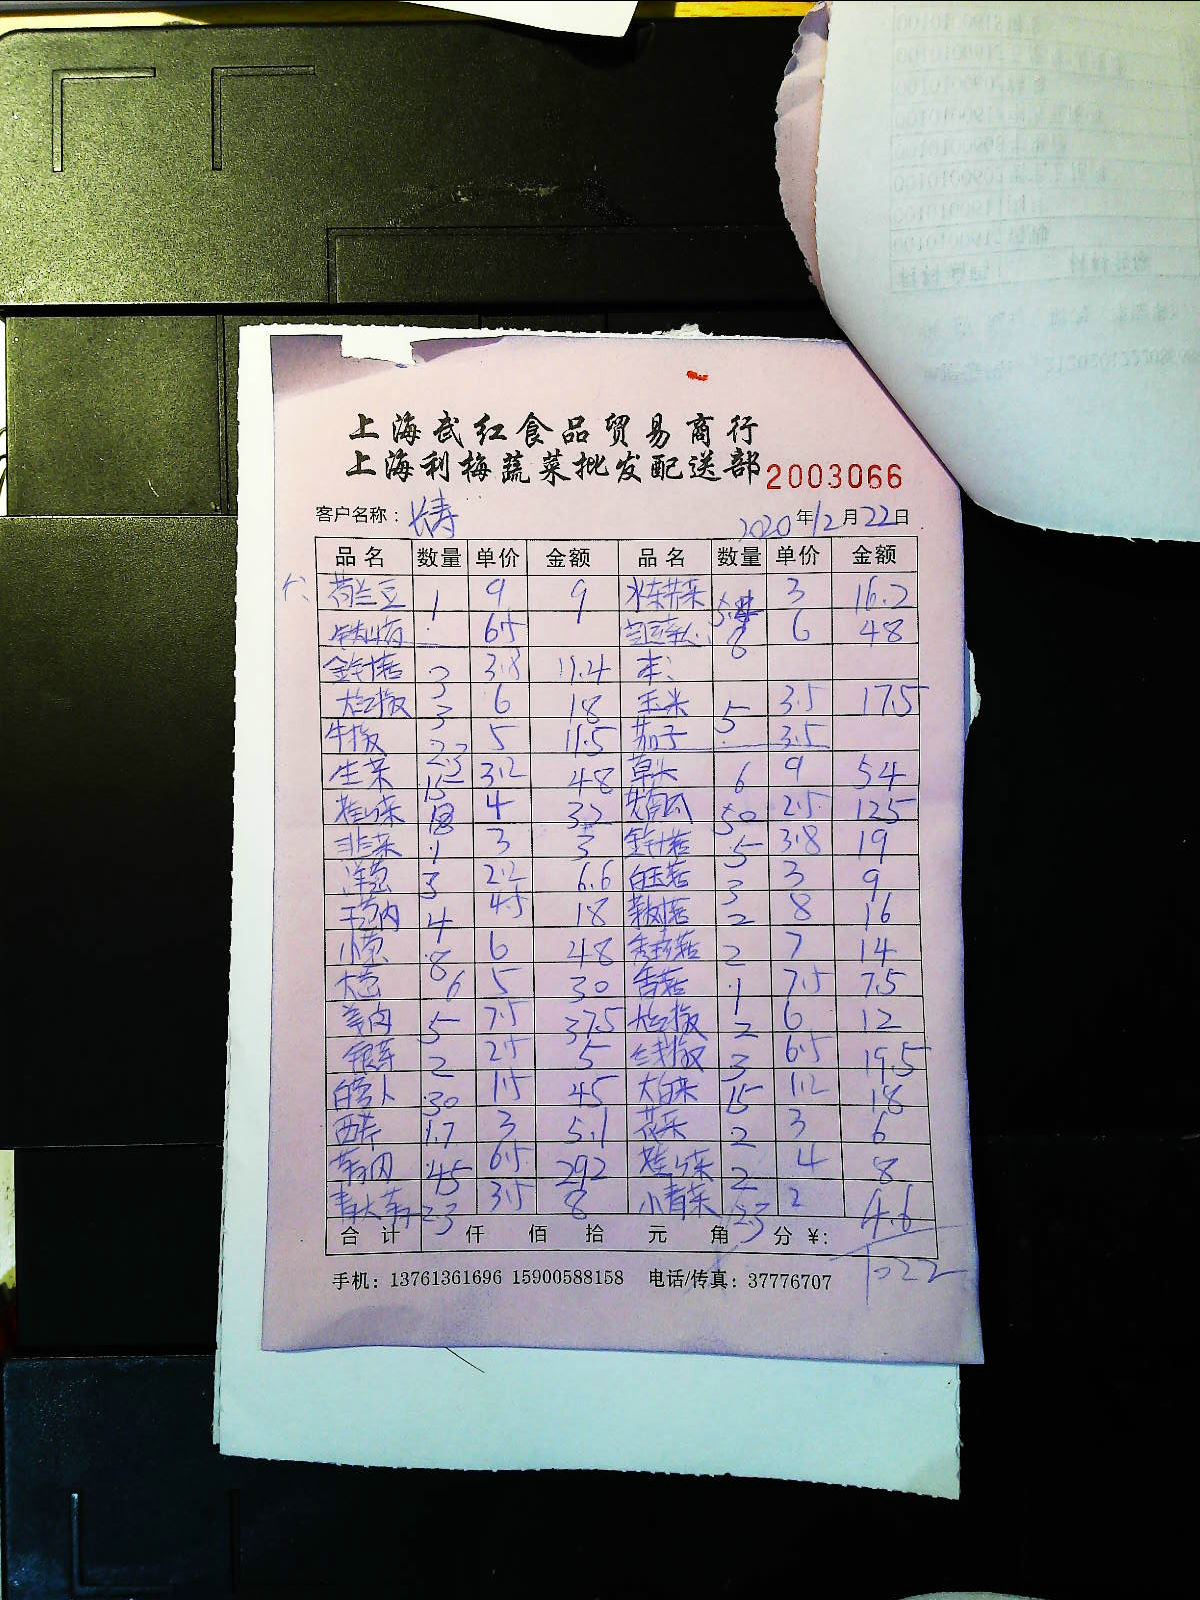 上海武红食品贸易商行
上海利梅蔬菜批发配送部 2003066
客户名称：长寿 2020年12月22日
品名 数量 单价 金额 品名 数量 单价 金额
荷兰豆 1 9 9 水东芥菜 5.4 3 16.2
6.5 8 6 48
金针菇 3 3.8 11.4
大红椒 3 6 18 玉米 5 3.5 17.5
牛椒 2.3 5 11.5 茄子 3.5
生菜 15 3.2 48 草头 6 9 54
8 4 32 50 2.5 125
韭菜 1 3 3 金针菇 5 3.8 19
洋葱 3 2.2 6.6 白玉菇 3 3 9
4 4.5 18 茶树菇 2 8 16
小葱 8 6 48 秀珍菇 2 7 14
大葱 6 5 30 香菇 1 7.5 7.5
姜肉 5 7.5 37.5 大红椒 2 6 12
银芽 2 2.5 5 3 6.5 19.5
白萝卜 30 1.5 45 大白菜 15 1.2 18
西芹 1.7 3 5.1 花菜 2 3 6
45 6.5 292 2 4 8
2.3 3.5 8 小青菜 2.3 2 4.6
合计 仟 佰 拾 元 角 分 ¥：
1022
手机：13761361696 15900588158 电话/传真：37776707